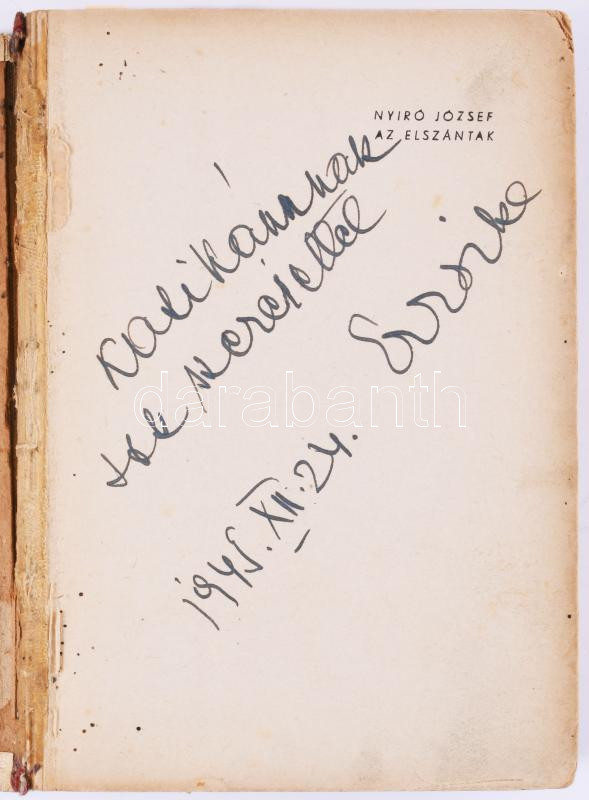 NYIRŐ JÓZSEF
AZ ELSZÁNTAK
Katikámnak
szeretettel
Erzsike
1945. XII. 24.
darabanth